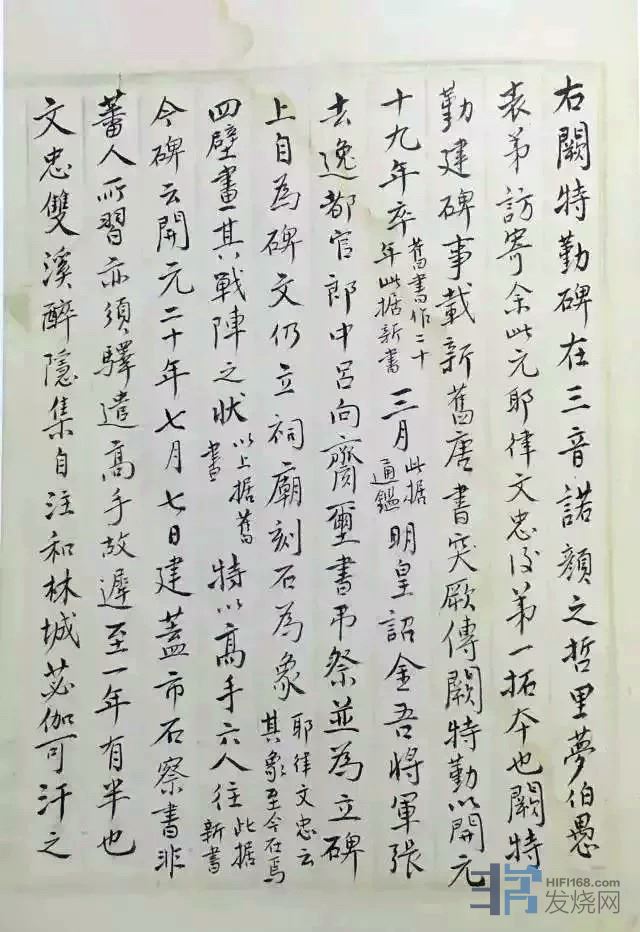 右闕特勤碑在三音諾顏之哲里夢伯愚
表弟訪寄余此元耶律文忠後第一拓本也闕特
勤建碑事載新舊唐書突厥傳闕特勤以開元
十九年卒舊書作二十年此據新書三月此据通鑑明皇詔金吾將軍張
去逸都官郎中呂向齎璽書弔祭並為立碑
上自為碑文仍立祠廟刻石為象耶律文忠云其象至今在焉
四壁畫其戰陣之狀以上据舊書特以高手六人往此据新書
今碑云開元二十年七月七日建蓋市石察書非
蕃人所習亦須驛遣高手故遲至一年有半也
文忠雙溪醉隱集自注和林城苾伽可汗之
HIFI168.com
发烧网